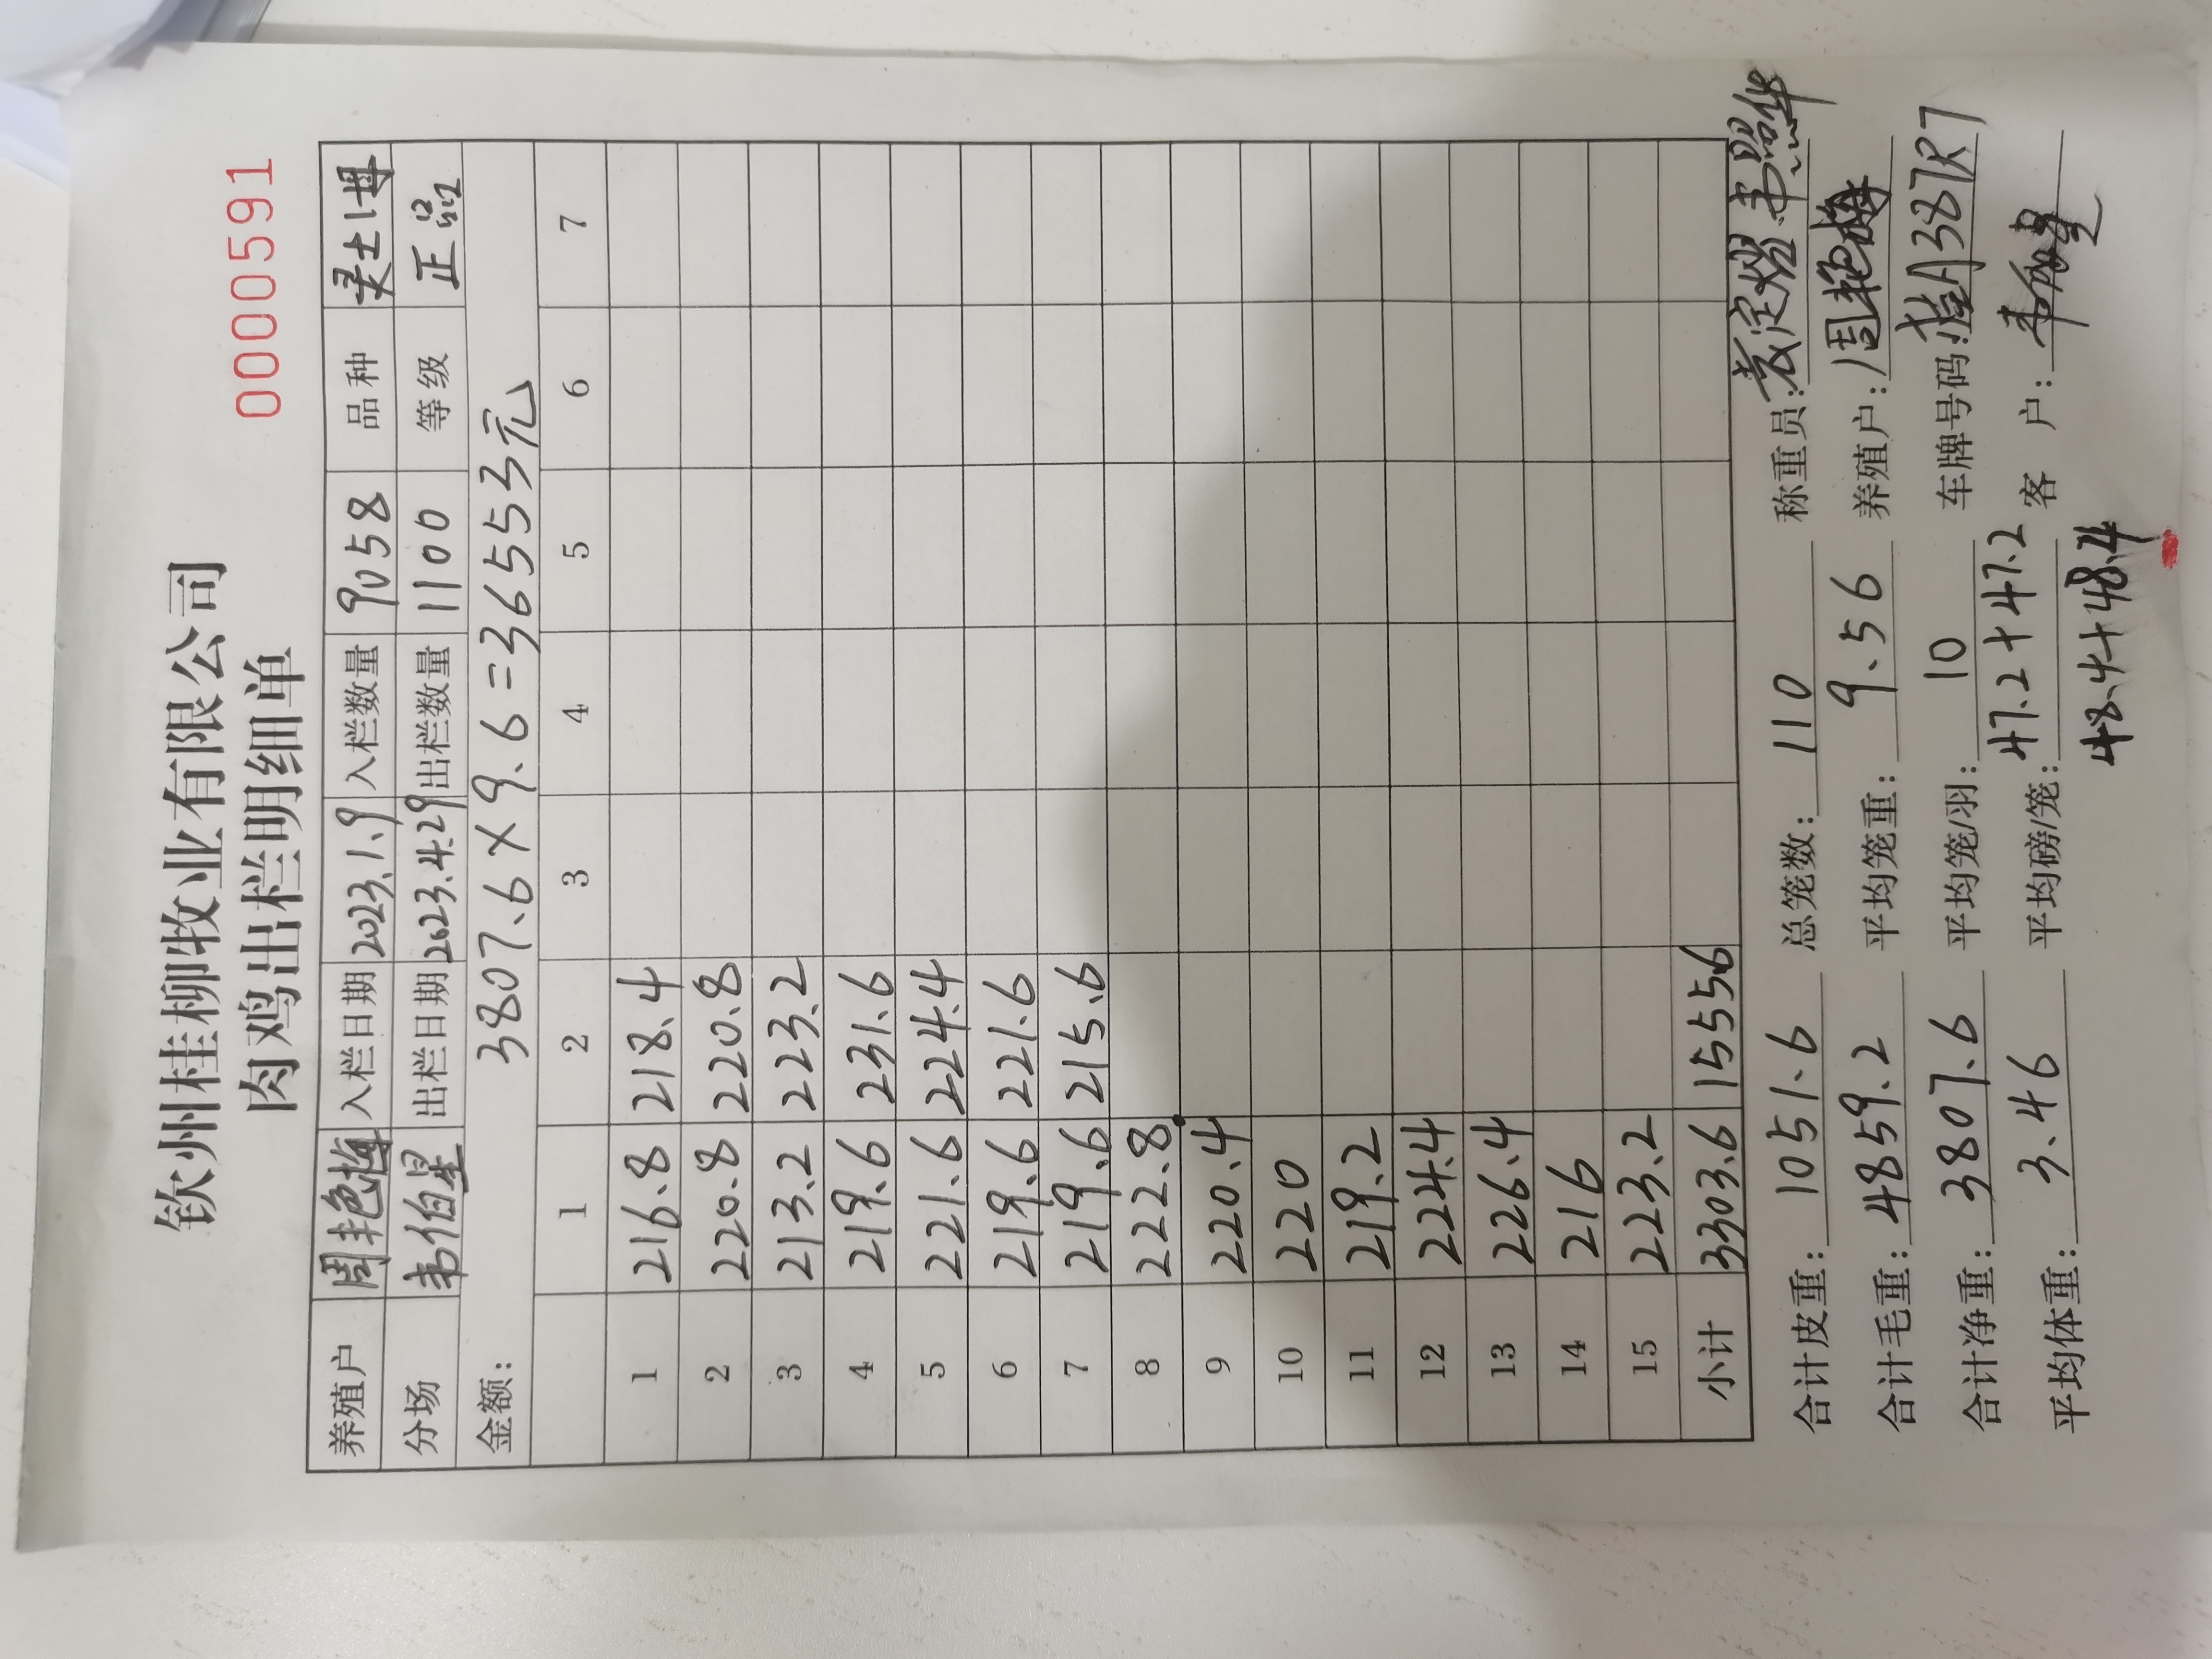 钦州桂柳牧业有限公司
肉鸡出栏明细单
0000591
养殖户 周艳梅 入栏日期 2023.1.9 入栏数量 9058 品种 灵土母
分场 韦伯星 出栏日期 2023.4.29 出栏数量 1100 等级 正品
金额: 3807.6×9.6=36553元
1 2 3 4 5 6 7
1 216.8 218.4
2 220.8 220.8
3 213.2 223.2
4 219.6 231.6
5 221.6 224.4
6 219.6 221.6
7 219.6 215.6
8 222.8
9 220.4
10 220
11 219.2
12 224.4
13 226.4
14 216
15 223.2
小计 3303.6 1555.6
合计皮重: 1051.6 总笼数: 110 称重员:
合计毛重: 4859.2 平均笼重: 9.56 养殖户: 周艳梅
合计净重: 3807.6 平均笼/羽: 10 车牌号码: 桂A387R7
平均体重: 3.46 平均磅/笼: 47.2+47.2 客 户:
48.4+48.4